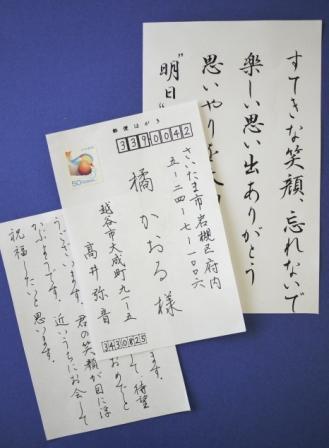 すてきな笑顔、忘れないで
楽しい思い出ありがとう
思いやりを
"明日"
郵便はがき
50
3390042
さいたま市岩槻区府内
五-二四-七-一〇〇六
橘 かおる 様
越谷市大成町九一-五
高井 弥音
3430825
ます。
して、待望
おめでと
うございます。君の笑顔が目に浮
かぶようです。近いうちにお会いして
祝福したいと思います。